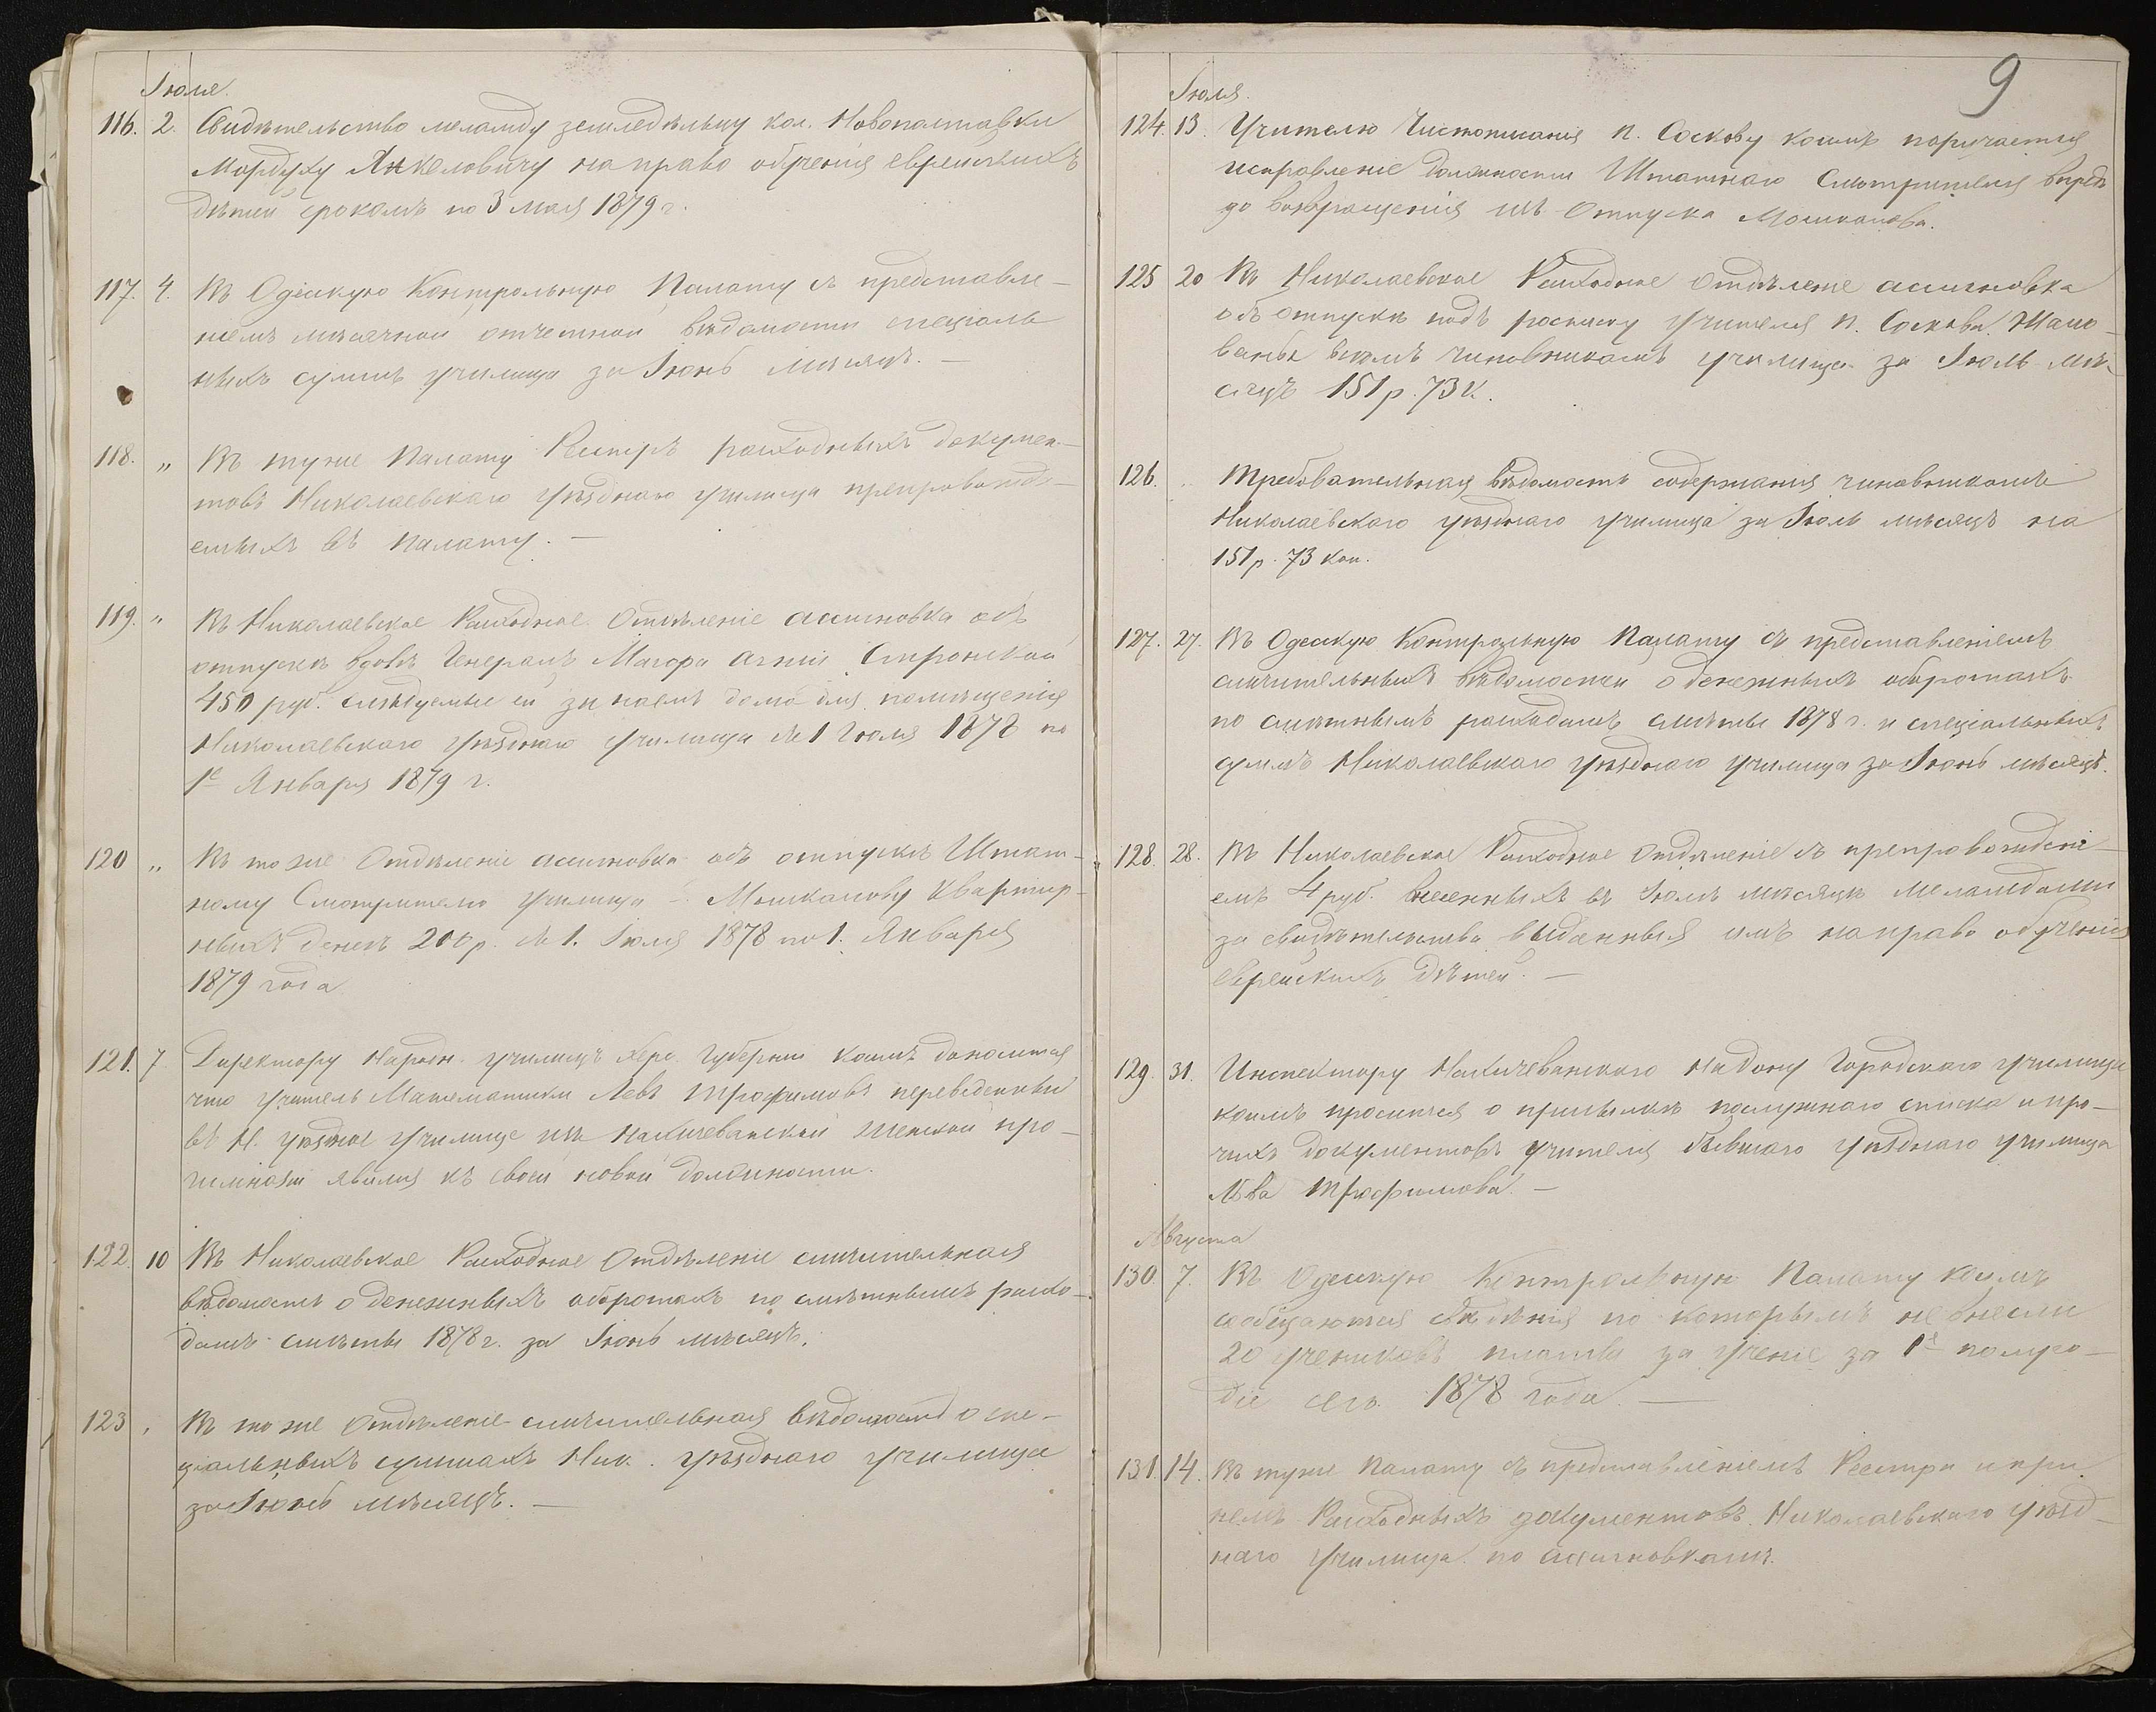 Іюля.
116. 2. Свидѣтельство меламду земледѣльцу кол. Новополтавки
Мордуху Янкеловичу на право обученія еврейскихъ
дѣтей срокомъ по 3 мая 1879 г.
117. 4. Въ Одескую Контрольную Палату съ представле-
ніемъ мѣсячной отчетной вѣдомости спеціаль
ныхъ суммъ училища за Іюнь мѣсяцъ. —
118. „ Въ туже Палату Реестръ расходныхъ докумен-
товъ Николаевскаго уѣзднаго училища препровожда-
емыхъ въ палату. —
119. „ Въ Николаевское Расходное Отдѣленіе ассигновка объ
отпускѣ вдовѣ Генералъ Маіора Агніи Стронской
450 руб. слѣдуемые ей за наемъ дома для помѣщенія
Николаевскаго уѣзднаго училища съ 1 Іюля 1878 по
1е Января 1879 г.
120 „ Въ тоже Отдѣленіе ассигновка объ отпускѣ Штат-
ному Смотрителю училища Мошкалову Квартир-
ныхъ денегъ 200 р. съ 1. Іюля 1878 по 1. Января
1879 года
121. 7 Директору Народн. училищъ Херс. Губерніи коимъ доносится
что учитель Математики Левъ Трофимовъ переведенный
въ Н. уѣздное училище изъ Нахичеванской женской про-
гимназіи явился къ своей новой должности.
122. 10 Въ Николаевское Расходное Отдѣленіе сличительная
вѣдомость о денежныхъ оборотахъ по смѣтнымъ расхо-
дамъ смѣты 1878 г. за Іюнь мѣсяцъ.
123 „ Въ тоже Отдѣленіе сличительная вѣдомость о спе-
ціальныхъ суммахъ Ник. уѣзднаго училища
за Іюнь мѣсяцъ. —
9
Іюля.
124. 13. Учителю Чистописанія п. Соскову коимъ поручается
исправленіе должности Штатнаго Смотрителя впредь
до возвращенія изъ Отпуска Мошкалова.
125 20 Въ Николаевское Расходное Отдѣленіе ассигновка
объ отпускѣ подъ росписку учителя п. Соскова. Жало-
ванья всѣмъ чиновникамъ училища за Іюль мѣ-
сяцъ 151 р. 73 к.
126. Требовательная вѣдомость содержанія чиновникамъ
Николаевскаго уѣзднаго училища за Іюль мѣсяцъ на
151 р. 73 коп.
127. 27. Въ Одесскую Контрольную Палату съ представленіемъ
сличительныхъ вѣдомостей о денежныхъ оборотахъ
по смѣтнымъ расходамъ смѣты 1878 г. и спеціальныхъ
суммъ Николаевскаго уѣзднаго училища за Іюнь мѣсяцъ.
128. 28. Въ Николаевское Расходное Отдѣленіе съ препровожденi-
емъ 4 руб. внесенныхъ въ Іюлѣ мѣсяцѣ меламдами
за свидѣтельства выданныя имъ на право обученія
еврейскихъ дѣтей. —
129. 31. Инспектору Нахичеванскаго На Дону Городскаго училища
коимъ просится о присылкѣ послужнаго списка и про-
чихъ документовъ учителя бывшаго уѣзднаго училища
Льва Трофимова. —
Августа
130. 7. Въ Одесскую Контрольную Палату коимъ
сообщаются свѣдѣнія по которымъ не внесли
20 учениковъ платы за ученіе за 1е полуго-
діе сего 1878 года. —
131. 14. Въ туже Палату съ представленіемъ Реестра и при
немъ Расходныхъ документовъ Николаевскаго уѣзд-
наго училища по ассигновкамъ.